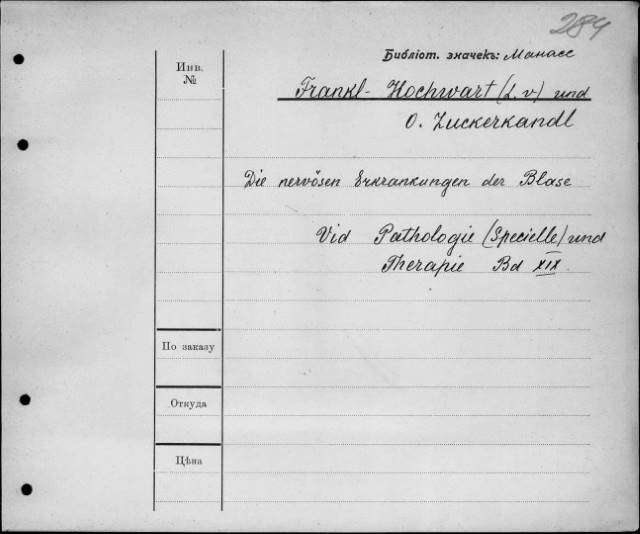 284
Библіот. значекъ: Манасс
Инв. №
Frankl-Hochwart (L. v) und
O. Zuckerkandl
Die nervösen Erkrankungen der Blase
Vid Pathologie (Specielle) und
Therapie Bd XIX
По заказу
Откуда
Цѣна